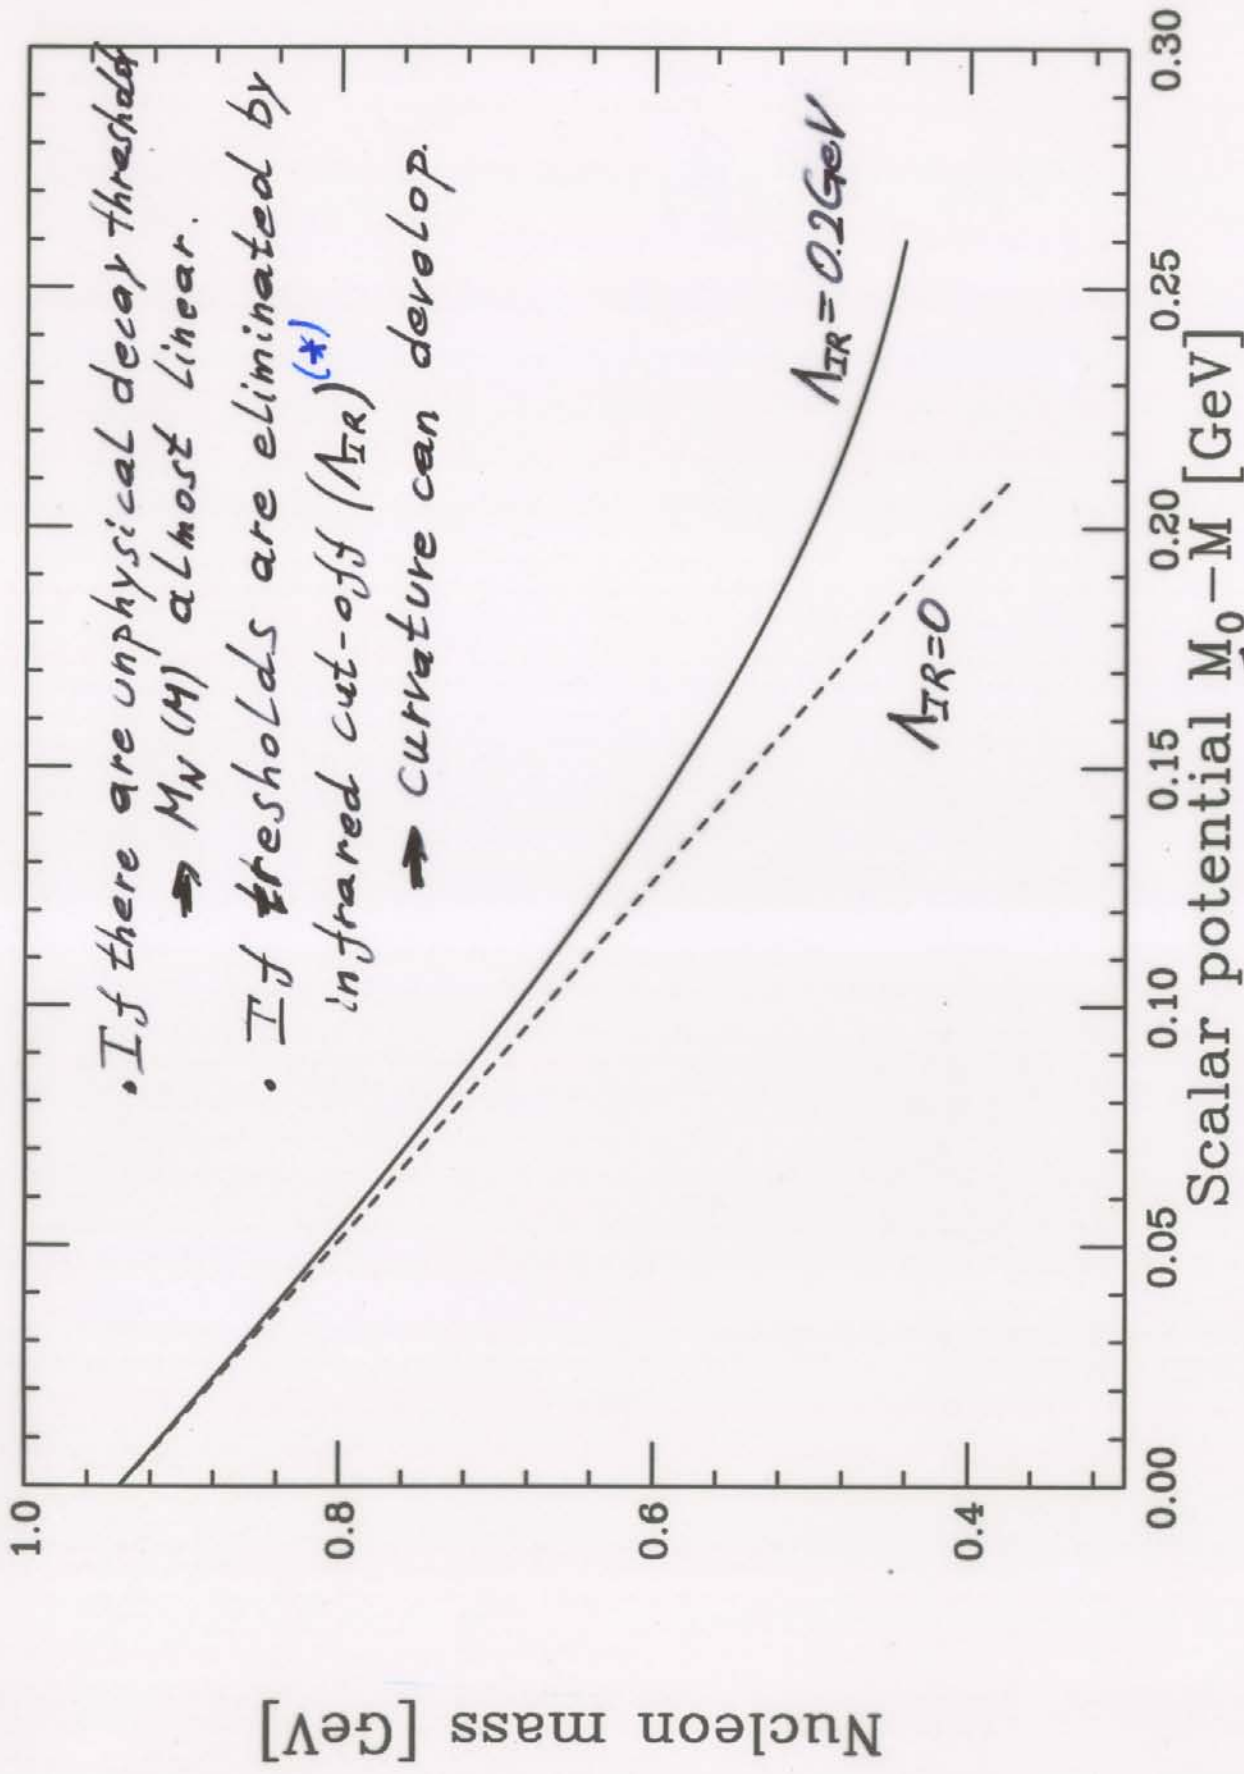 · If there are unphysical decay thresholds
→ M_N (M) almost linear.
· If tresholds are eliminated by
infrared cut-off (Λ_IR) (*)
→ curvature can develop.
Λ_IR = 0.2 GeV
Λ_IR = 0
1.0
0.8
0.6
0.4
Nucleon mass [GeV]
0.00 0.05 0.10 0.15 0.20 0.25 0.30
Scalar potential M₀−M [GeV]